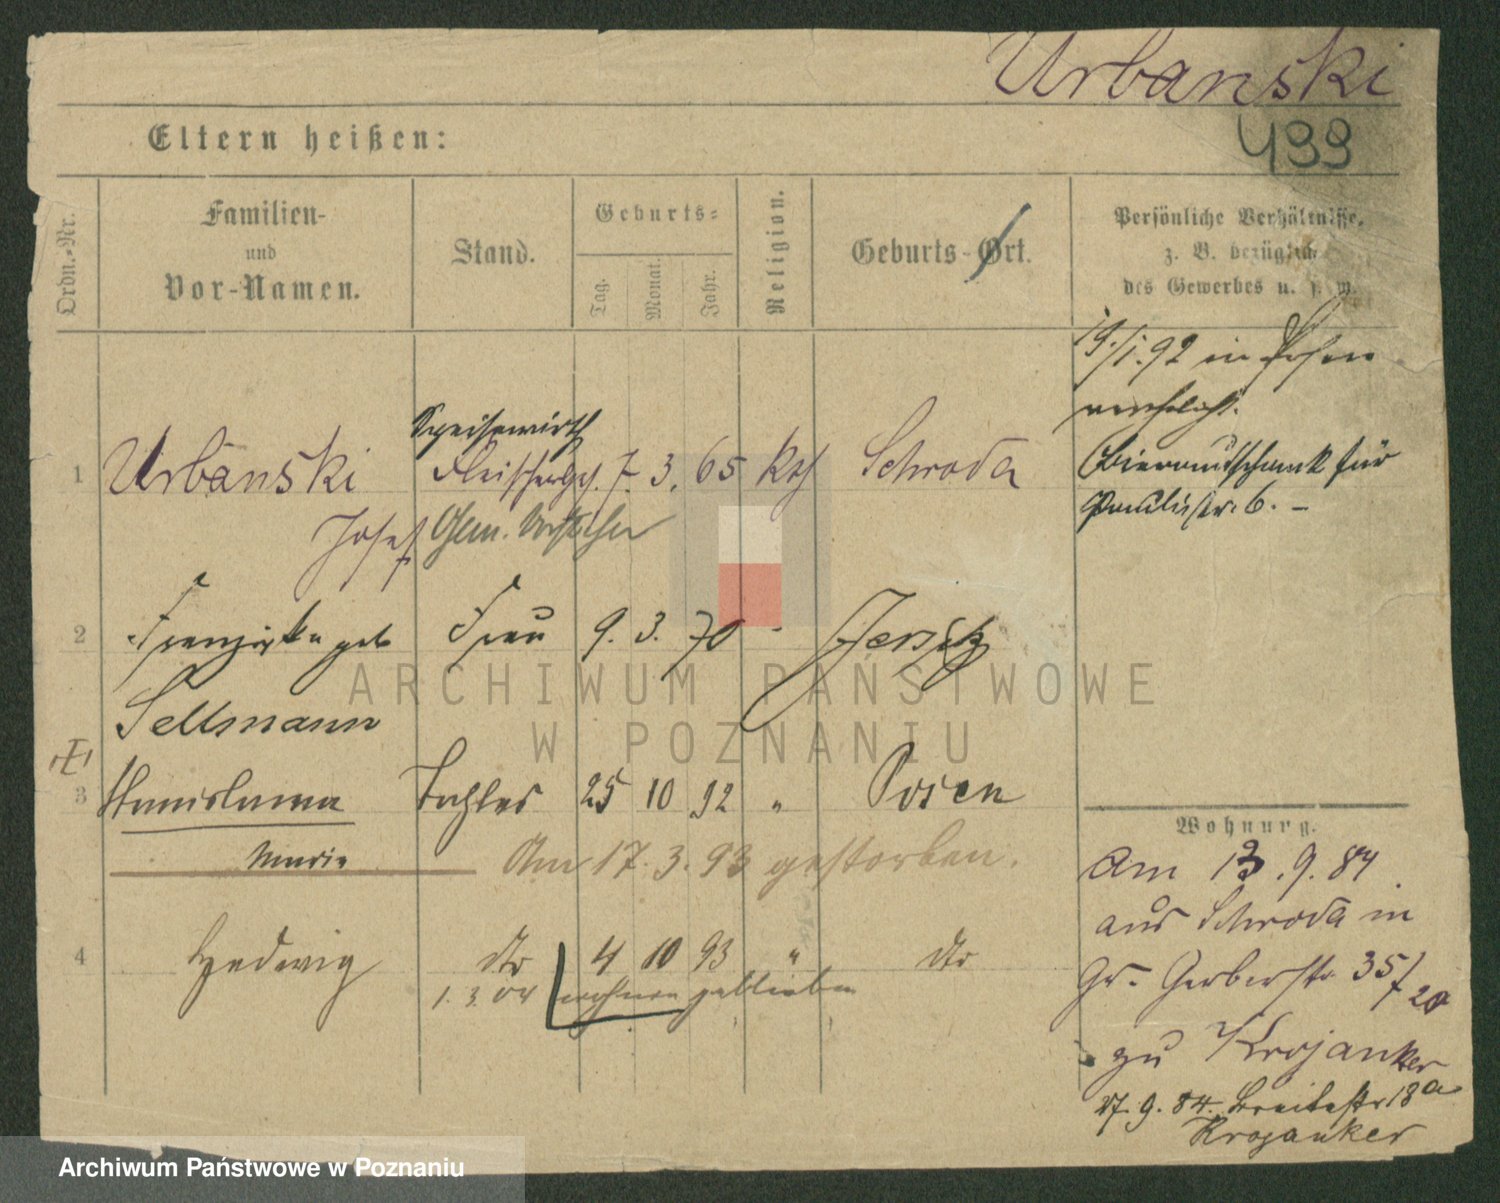 Urbanski
499
Eltern heißen:
Ordn.-Nr.
Familien-
und
Vor-Namen.
Stand.
Geburts-
Tag.
Monat.
Jahr.
Religion.
Geburts-Ort.
Persönliche Verhältnisse,
z. B. bezüglich
des Gewerbes u. s. w.
19./1.92 in Posen
verehelicht.
Bierausschank für
Paulistr. 6. –
Speisewirth
1 Urbanski Fleischerges. 7. 3. 65 kth Schroda
Josef Gem. Vorsteher
2 Franziska geb Frau 9. 3. 70 - Jersitz
Sellmann
3 Stanislawa Tochter 25 10 92 " Posen
Marie Am 17. 3. 93 gestorben.
4 Hedwig dto 4 10 93 " dto
1. 3. 04 wohnen geblieben
Wohnung.
Am 13. 9. 84
aus Schroda in
Gr. Gerberstr. 35/20
zu Krojanker
27. 9. 84. Breitestr 18a
Krojanker
ARCHIWUM PAŃSTWOWE
W POZNANIU
Archiwum Państwowe w Poznaniu